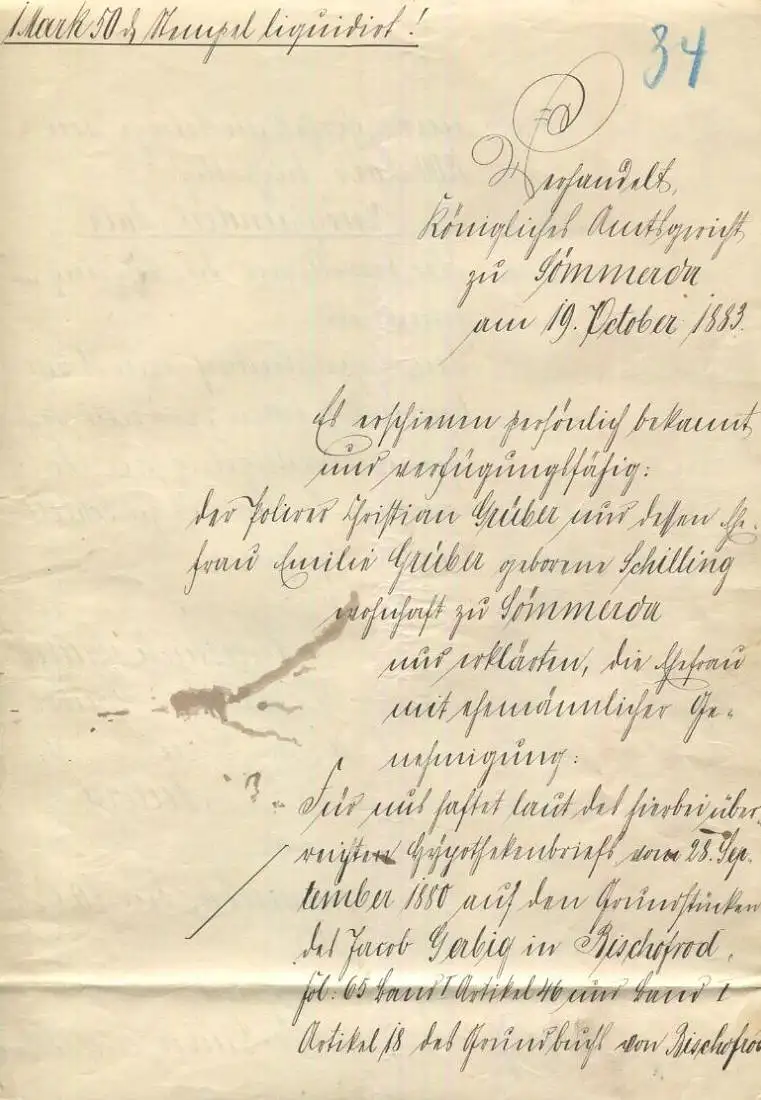 1 Mark 50 ₰ Stempel liquidirt!
34
Verhandelt,
Königliches Amtsgericht
zu Sömmerda
am 19. October 1883.
Es erschienen persönlich bekannt
und verfügungsfähig:
der Polirer Christian Grüber und dessen Ehe-
frau Emilie Grüber geborene Schilling
wohnhaft zu Sömmerda
und erklärten, die Ehefrau
mit ehemännlicher Ge-
nehmigung:
Für uns haftet laut des hierbei über-
reichten Hypothekenbriefs vom 28. Sep-
tember 1880 auf den Grundstücken
des Jacob Gerbig in Bischofrod,
fol: 65 Band I Artikel 46 und Band I
Artikel 18 des Grundbuchs von Bischofrod